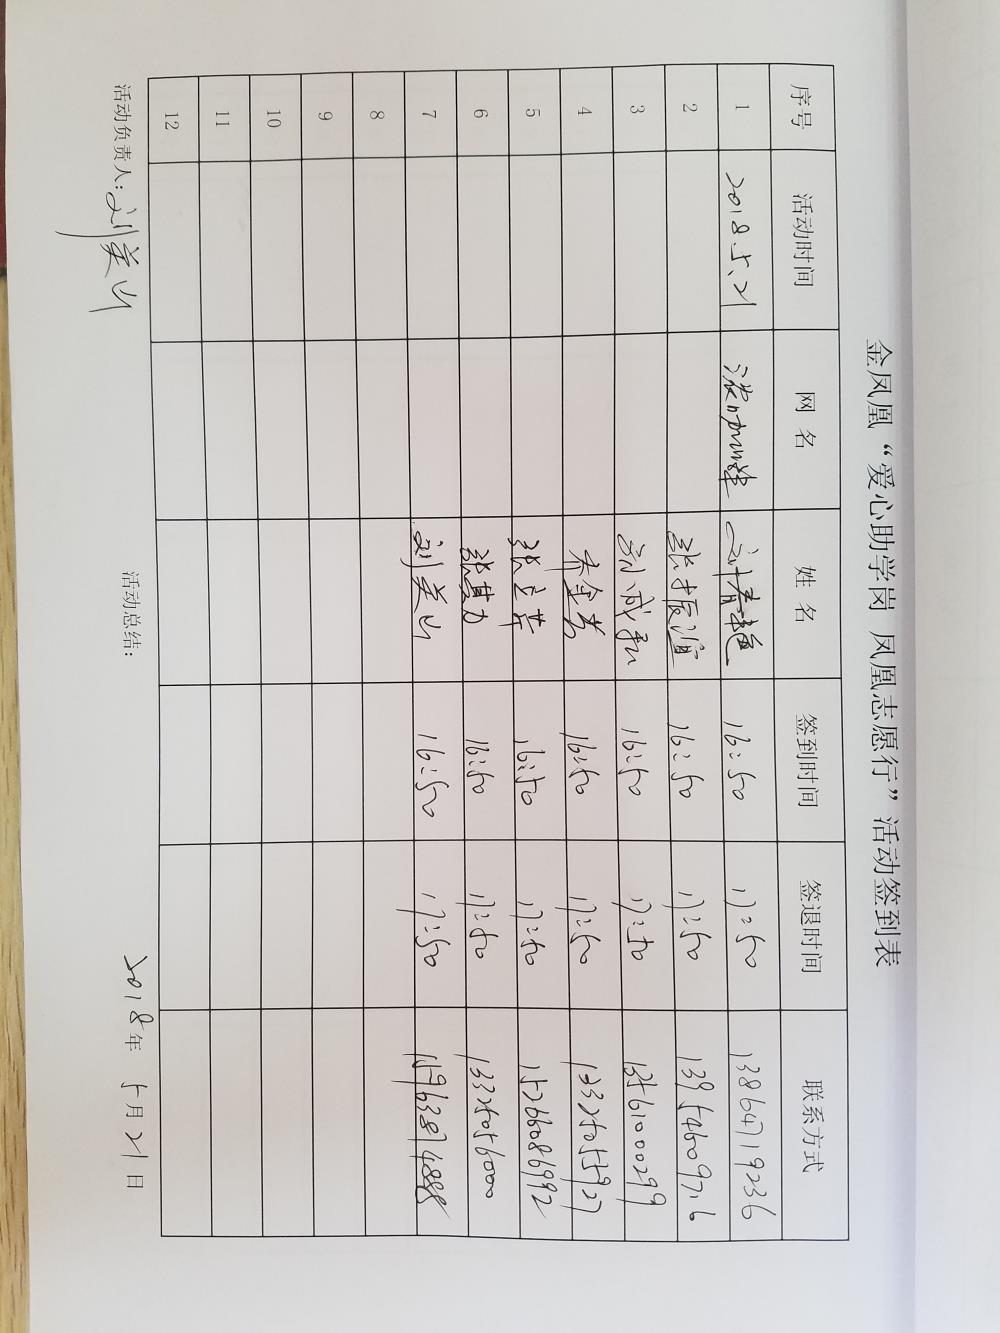 金凤凰“爱心助学岗 凤凰志愿行”活动签到表
序号 活动时间 网名 姓名 签到时间 签退时间 联系方式
1 2018.5.21 刘春艳 16:50 17:50 13864719236
2 张振谊 16:50 17:50 13954609716
3 16:50 17:50 13561000299
4 16:50 17:50 13325055927
5 16:50 17:50 15266086992
6 张其力 16:50 17:50 13325056000
7 刘美山 16:50 17:50 15963874888
8
9
10
11
12
活动负责人:刘美山 活动总结: 2018年5月21日